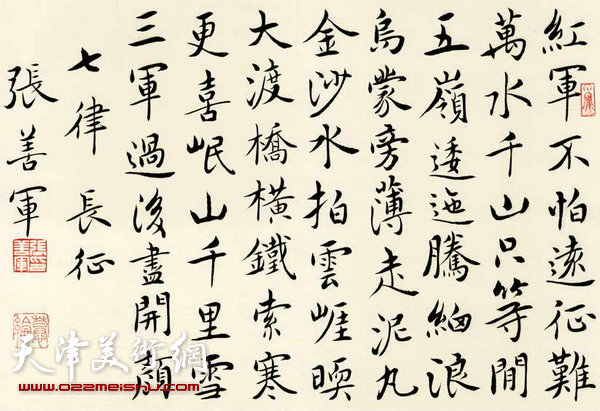 紅軍不怕遠征難
萬水千山只等閒
五嶺逶迤騰細浪
烏蒙旁薄走泥丸
金沙水拍雲崕暖
大渡橋橫鐵索寒
更喜岷山千里雪
三軍過後盡開顏
七律長征
張善軍
天津美術網
www.022meishu.com